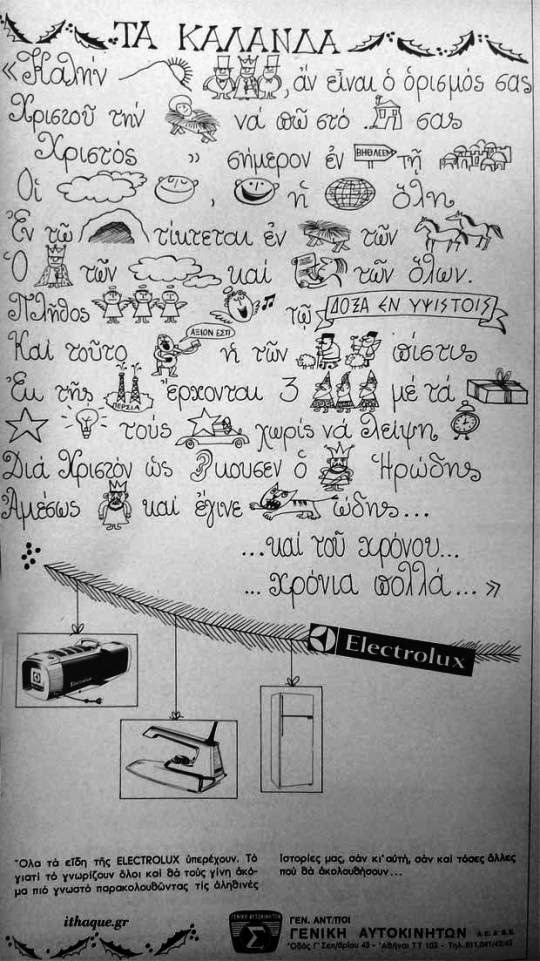 ΤΑ ΚΑΛΑΝΔΑ
«Καλήν , ἄν εἶναι ὁ ὁρισμός σας
Χριστοῦ τήν νά πῶ στό σας
Χριστός ,, σήμερον ἐν ΒΗΘΛΕΕΜ τῇ
Οἱ , ἡ ὅλη
Ἐν τῷ τίκτεται ἐν τῶν
Ὁ τῶν καί τῶν ὅλων.
Πλῆθος τῷ ΔΟΞΑ ΕΝ ΥΨΙΣΤΟΙΣ
ΑΞΙΟΝ ΕΣΤΙ
Καί τοῦτο ἡ τῶν πίστις
Ἐκ τῆς ΠΕΡΣΙΑ ἔρχονται 3 μέ τά
τούς χωρίς νά λείψη
Διά Χριστόν ὡς κουσεν ὁ Ἡρώδης
Ἀμέσως καί ἔγινε ώδης...
...καί τοῦ χρόνου...
...χρόνια πολλά...»
Electrolux
Electrolux
Ὅλα τά εἴδη τῆς ELECTROLUX ὑπερέχουν. Τό
γιατί τό γνωρίζουν ὅλοι καί θά τούς γίνη ἀκό-
μα πιό γνωστό παρακολουθῶντας τίς ἀληθινές
Ἱστορίες μας, σάν κι' αὐτή, σάν καί τόσες ἄλλες
πού θά ἀκολουθήσουν...
ithaque.gr
ΓΕΝΙΚΗ ΑΥΤΟΚΙΝΗΤΩΝ
Σ
ΓΕΝ. ΑΝΤ/ΠΟΙ
ΓΕΝΙΚΗ ΑΥΤΟΚΙΝΗΤΩΝ Α.Ε.Α.Β.Ε.
Ὁδός Γ' Σεπ/βρίου 43 - Ἀθῆναι ΤΤ 103 - Τηλ.